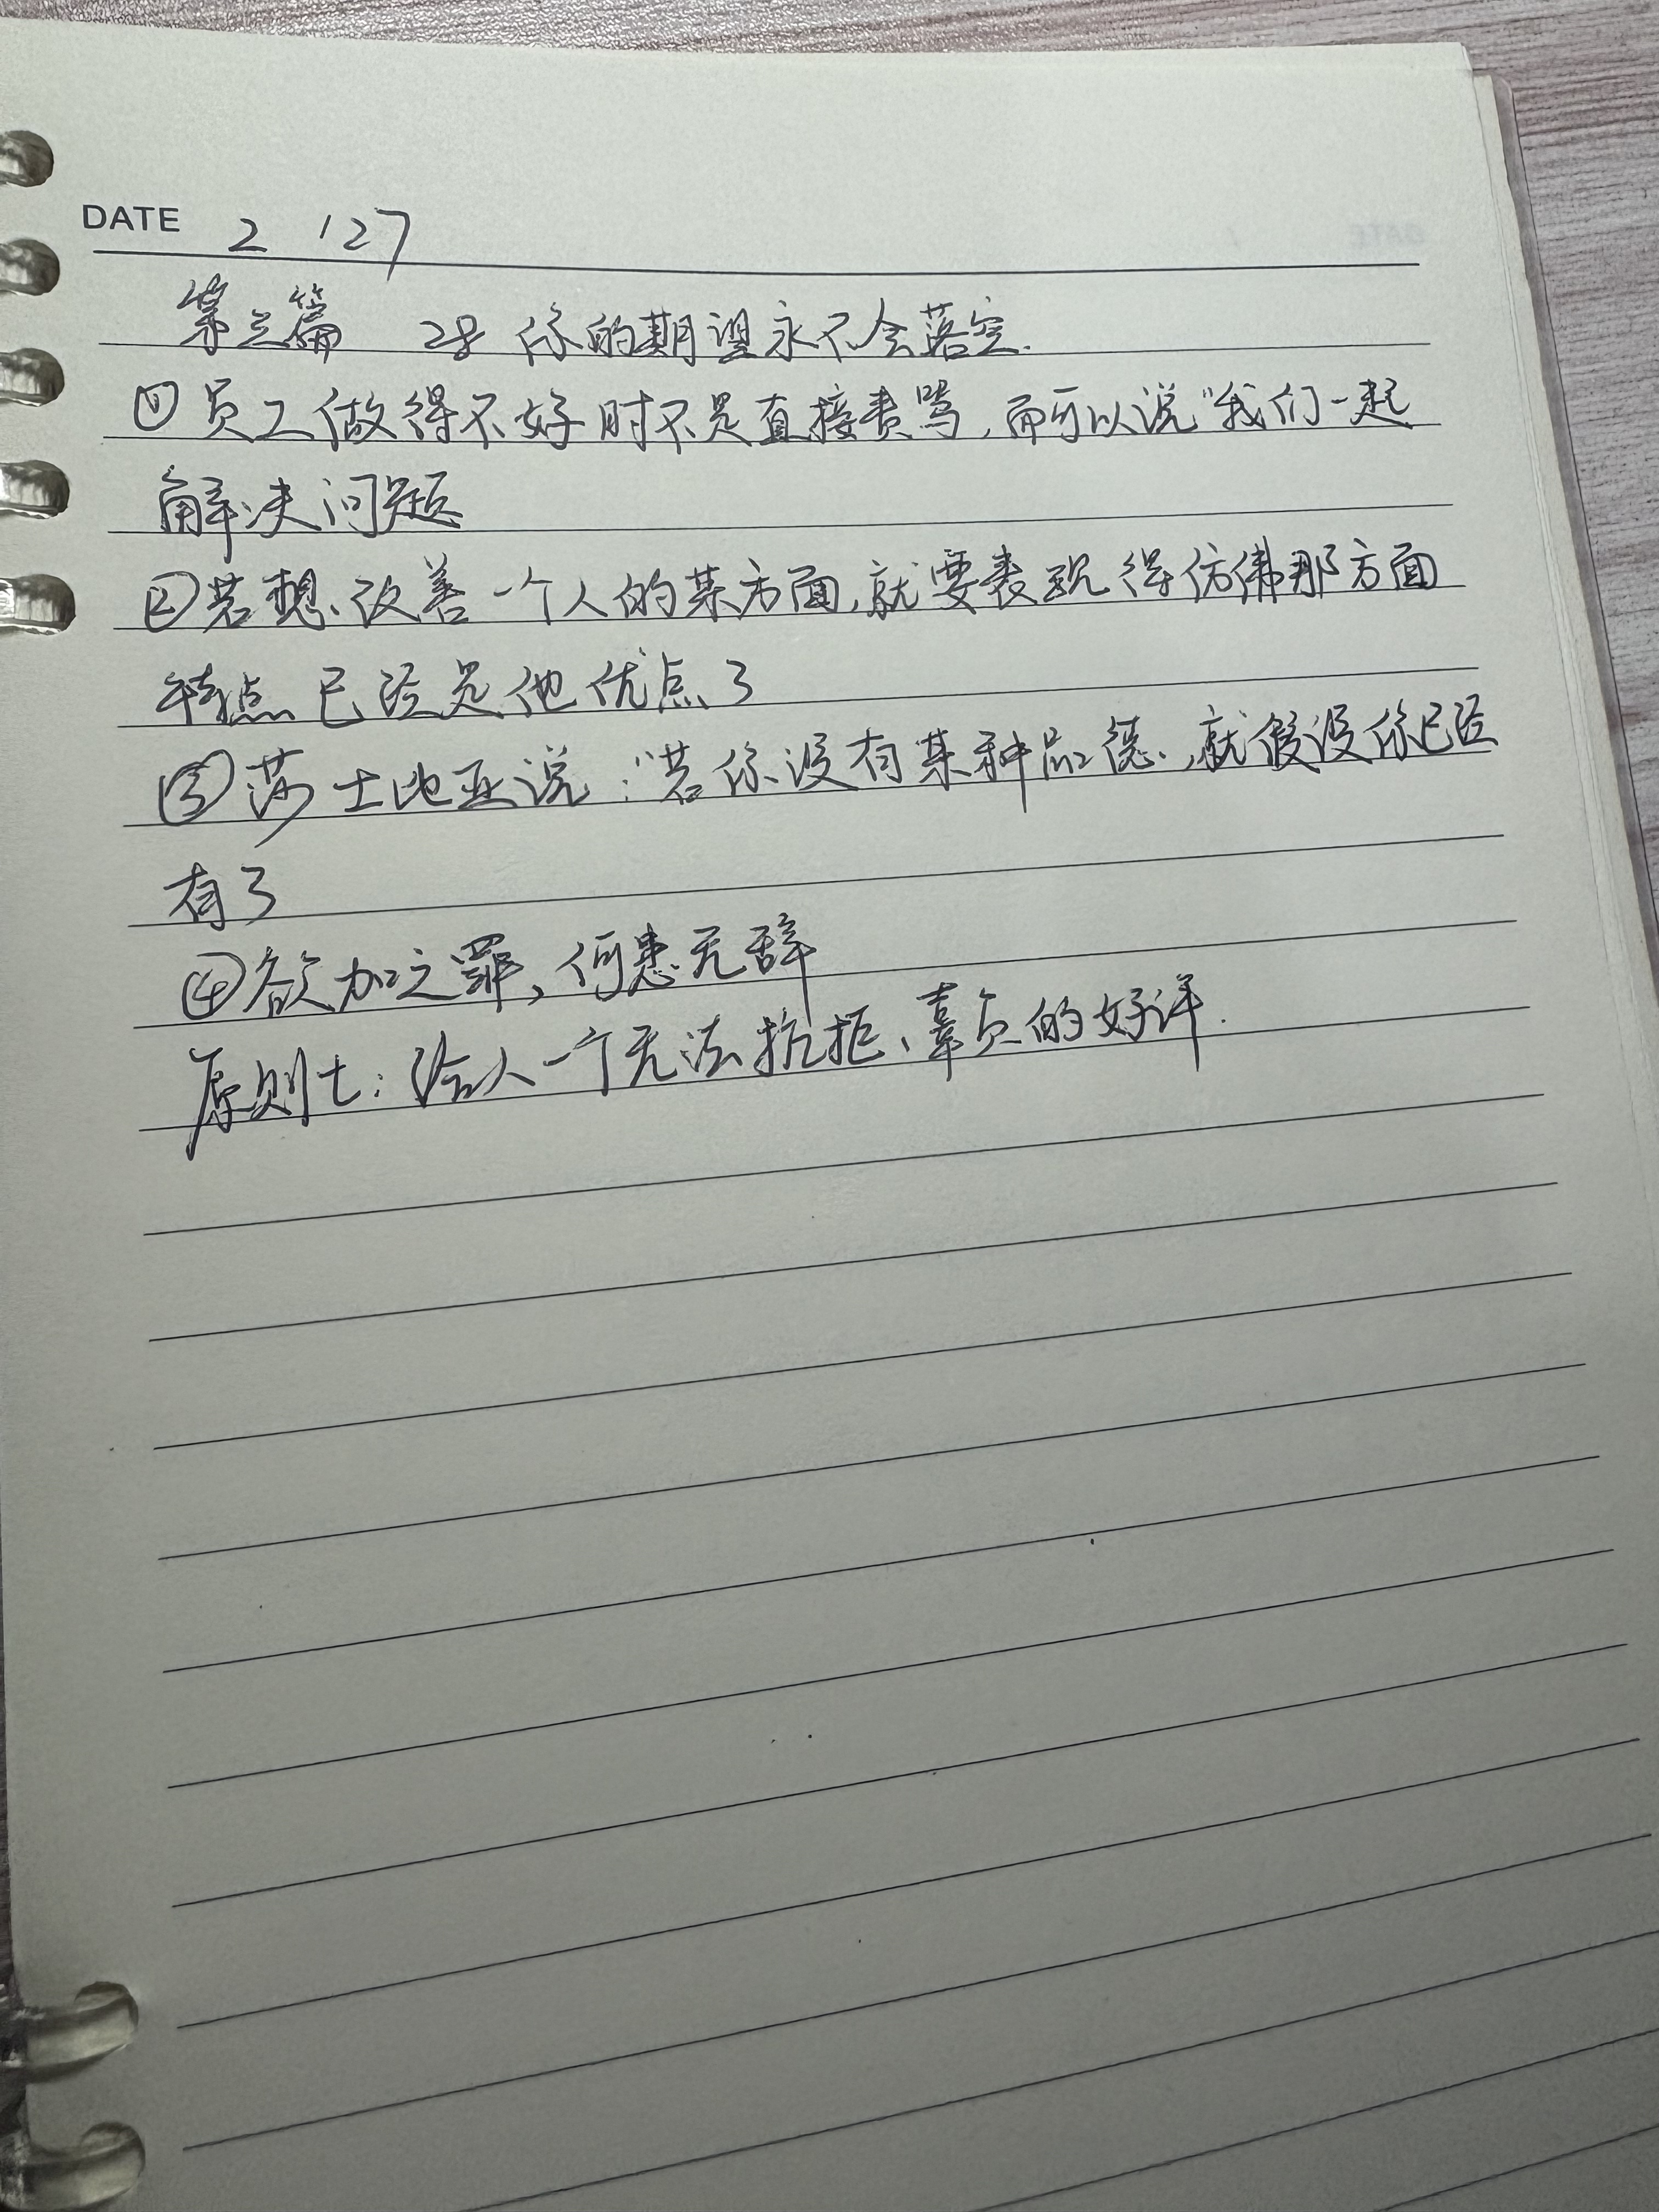 DATE 2 / 27
第三篇 28 你的期望永不会落空.
①员工做得不好时不是直接责骂,而可以说“我们一起
解决问题
②若想改善一个人的某方面,就要表现得仿佛那方面
特点已经是他优点了
③莎士比亚说:“若你没有某种品德,就假设你已经
有了
④欲加之罪,何患无辞
原则七:给人一个无法抗拒、辜负的好评.